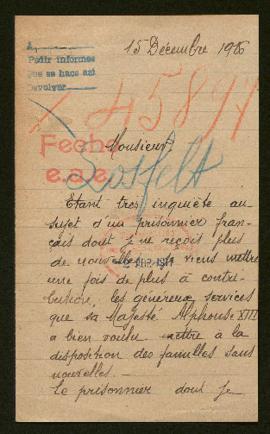 15 Décembre 1916
A
Pedir informes
que se hace así
Devolver
45894
Fecha
e.a.e.
Monsieur,
Losfelt
Etant très inquiète au
sujet d'un prisonnier fran-
çais dont je ne reçois plus
de nouvelles, je viens mettre
une fois de plus à contri-
bution, les généreux services
que sa Majesté Alphonse XIII
a bien voulu mettre à la
disposition des familles sans
nouvelles. —
Le prisonnier dont je